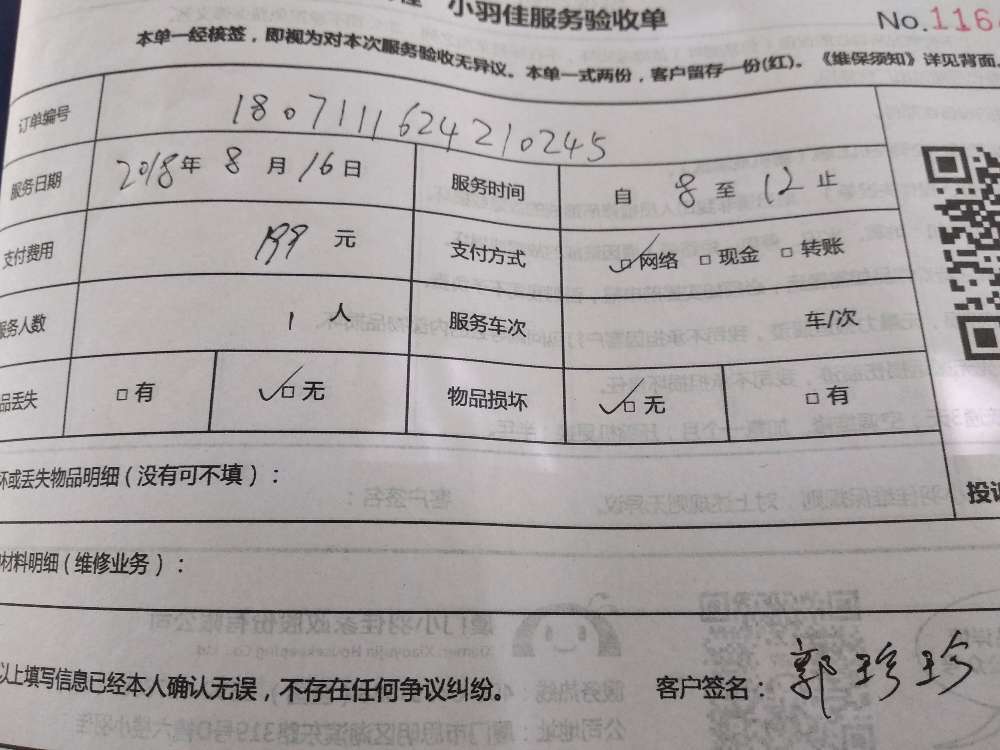 小羽佳服务验收单 No.116
本单一经核签，即视为对本次服务验收无异议。本单一式两份，客户留存一份(红)。《维保须知》详见背面。
订单编号 1807111624210245
服务日期 2018年8月16日 服务时间 自8至12止
支付费用 199元 支付方式 ☑网络 □现金 □转账
服务人数 1人 服务车次 车/次
品丢失 □有 ☑无 物品损坏 ☑无 □有
坏或丢失物品明细（没有可不填）：
投诉
材料明细（维修业务）：
以上填写信息已经本人确认无误，不存在任何争议纠纷。 客户签名：郭珍珍